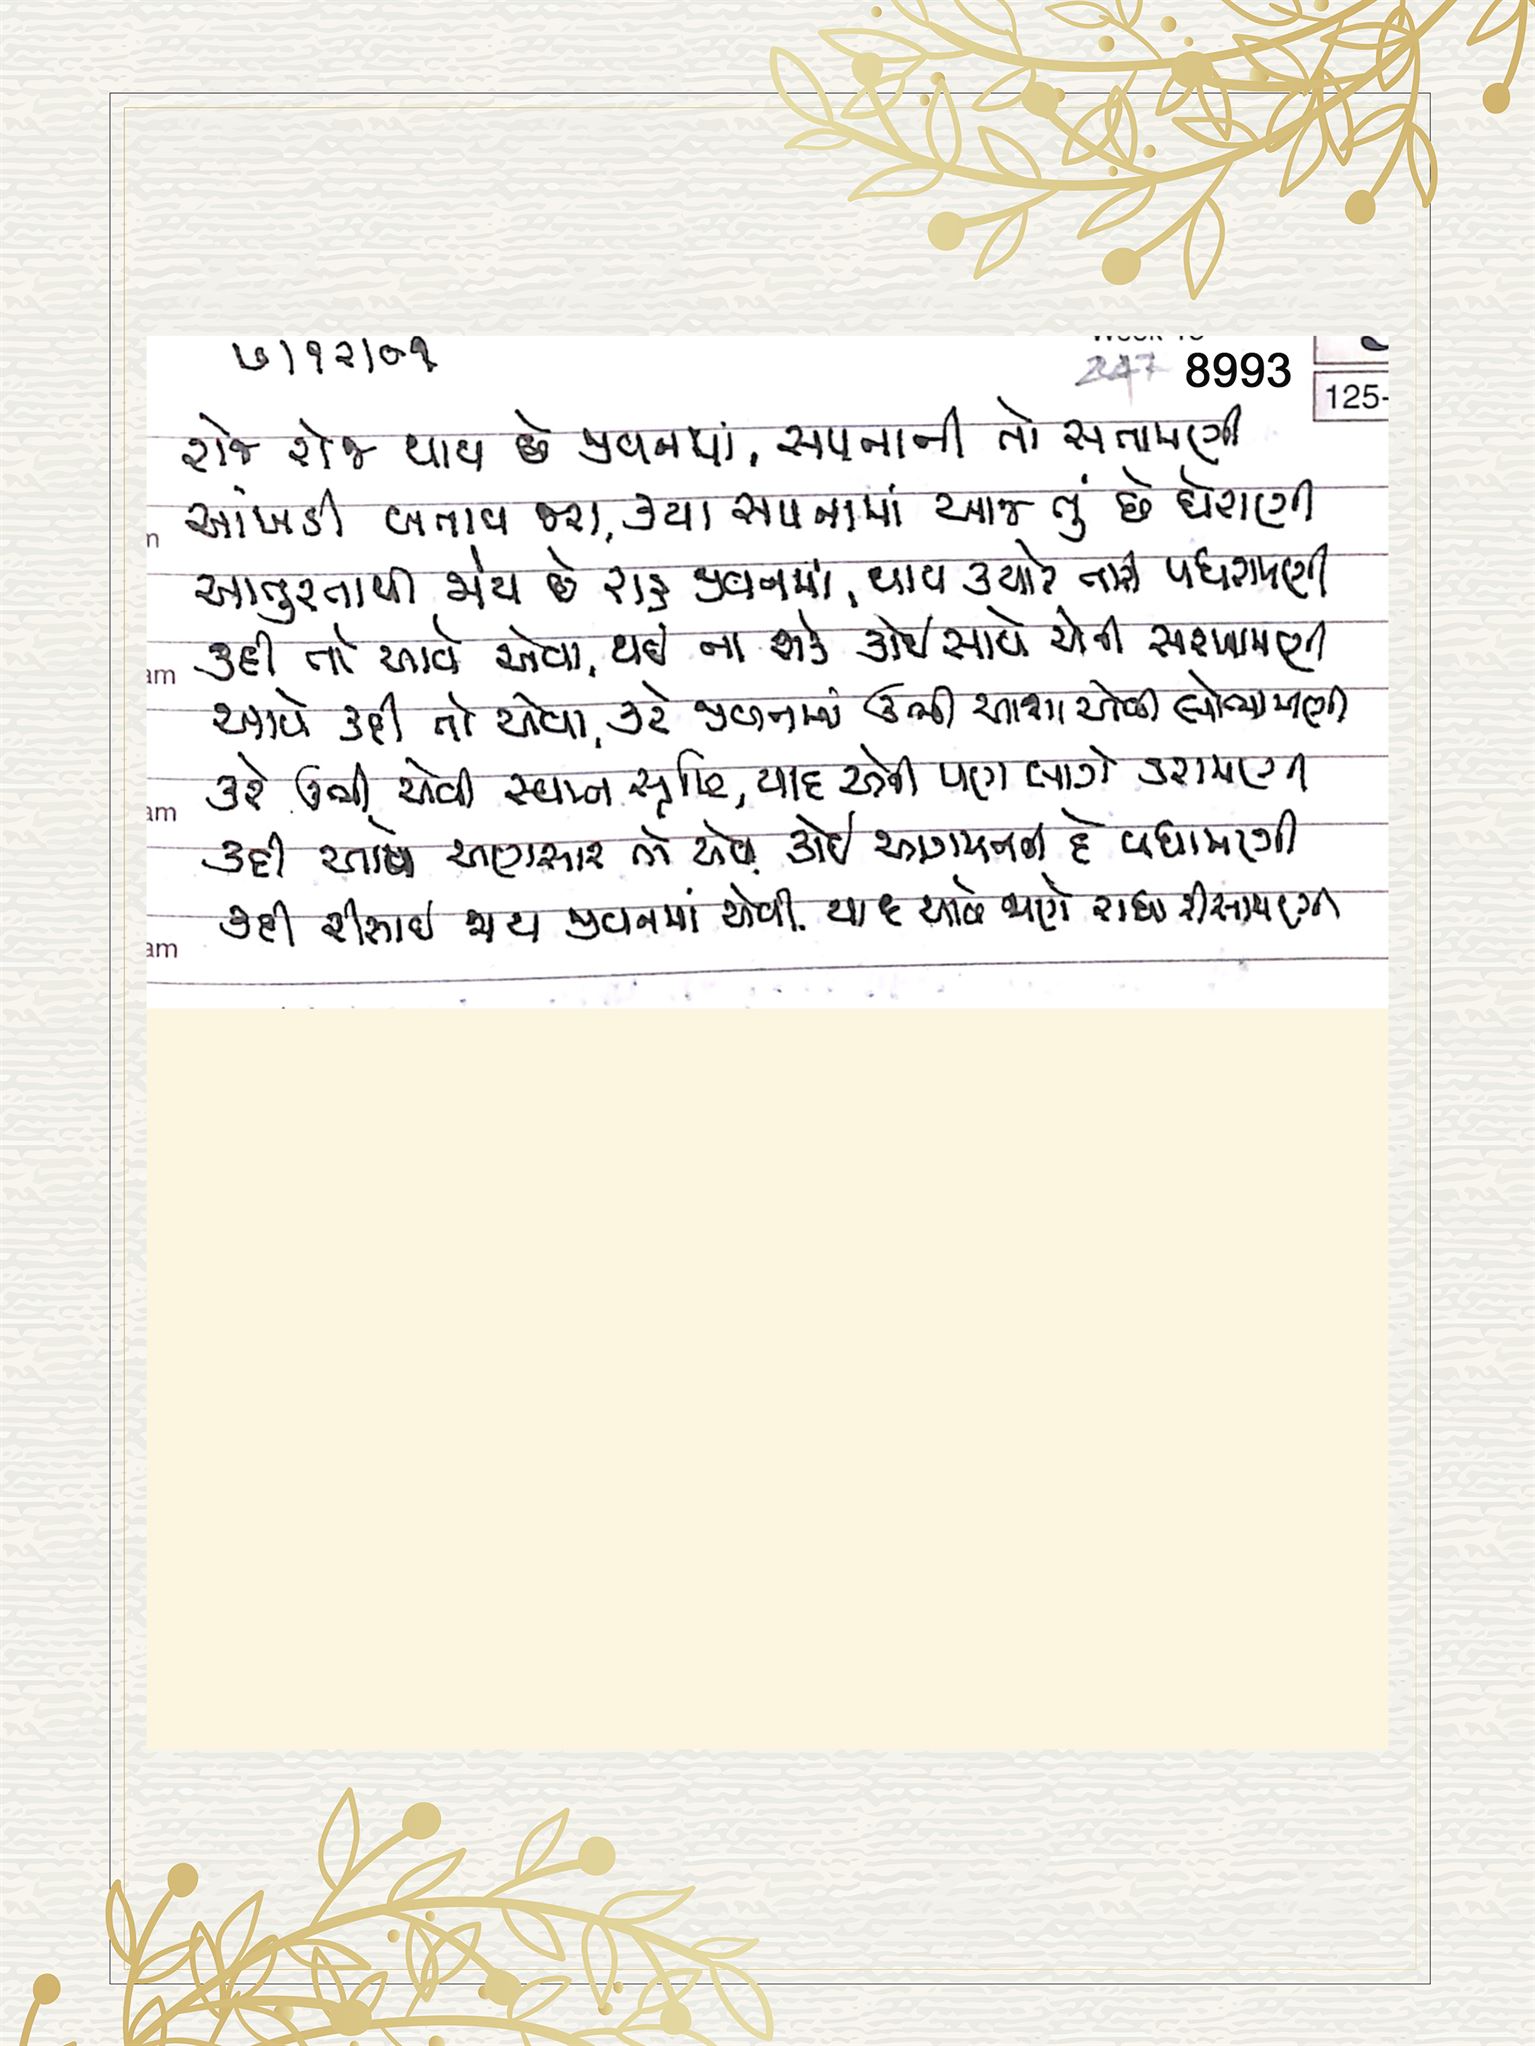 ૭/૧૨/૦૧
Week
247 8993
125-
રોજ રોજ થાય છે જીવનમાં, સપનાની તો સતામણી
n
આંખડી બતાવ જરા, કયા સપનામાં આજ તું છે ઘેરાણી
આતુરતાથી જોવાય છે રાહ જીવનમાં, થાય ક્યારે તારી પધરામણી
am
કદી તો આવે એવા, થઈ ના શકે કોઈ સાથે એની સરખામણી
આવે કદી તો એવા, કરે જીવનમાં ઊભી આશા એવી લોભામણી
am
કરે ઊભી એવી સ્વપ્ન સૃષ્ટિ, યાદ એની પણ લાગે ડરામણી
કદી આપે અણસાર તો એવા કોઈ આગમનની દે વધામણી
am
કદી રીસાઈ જાય જીવનમાં એવી. યાદ આવે જાણે રાધા રીસામણી